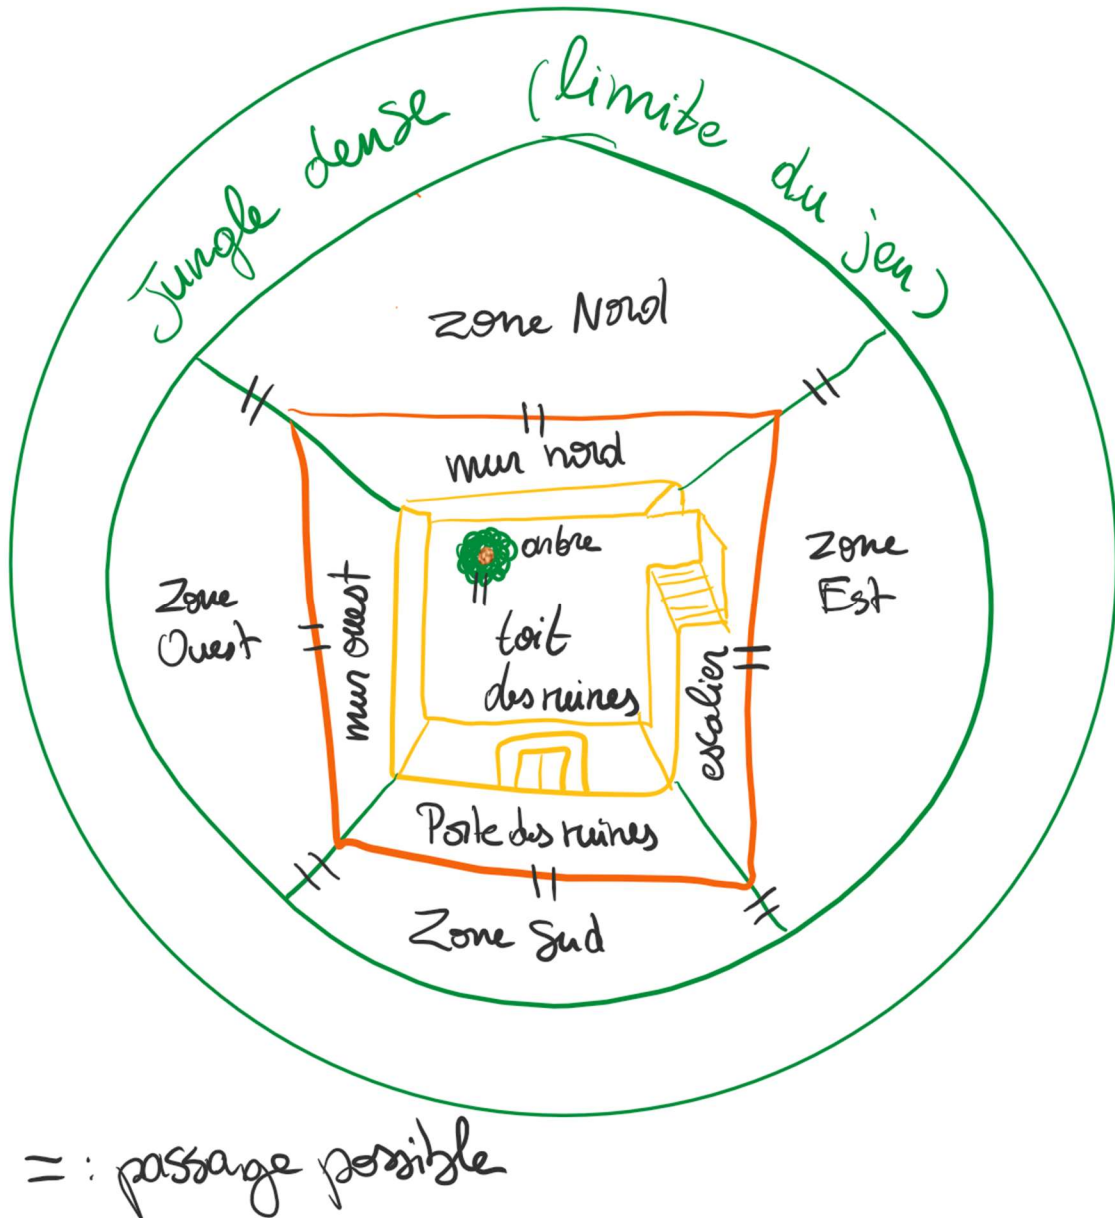 Jungle dense (limite du jeu)
zone Nord
mur nord
arbre
zone
Est
Zone
Ouest
mur ouest
toit
des ruines
escalier
Porte des ruines
Zone Sud
= : passage possible